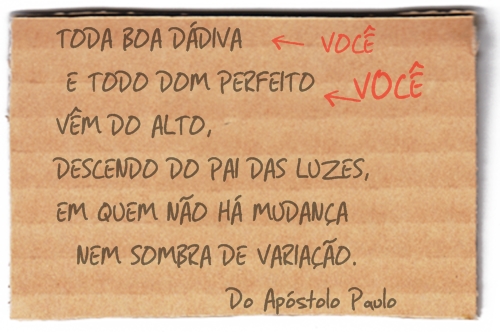 TODA BOA DÁDIVA ← VOCÊ
E TODO DOM PERFEITO ← VOCÊ
VÊM DO ALTO,
DESCENDO DO PAI DAS LUZES,
EM QUEM NÃO HÁ MUDANÇA
NEM SOMBRA DE VARIAÇÃO.
Do Apóstolo Paulo